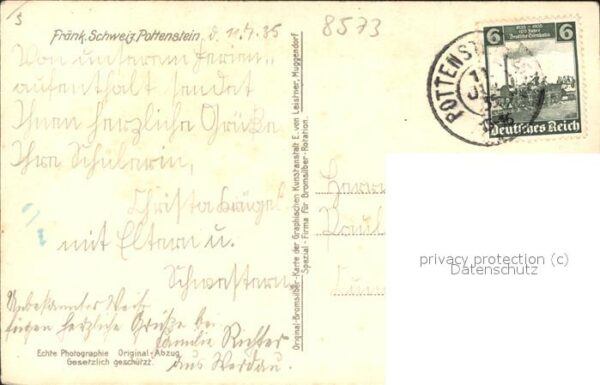 5
Fränk. Schweiz, Pottenstein d. 11.7.35
8573
Von unserem Ferien-
aufenthalt sendet
Ihnen herzliche Grüße
Ihre Schülerin,
Christa
mit Eltern u.
Schwestern.
Unbekannter Weise
fügen herzliche Grüße bei
Familie Richter
aus Werdau.
Echte Photographie Original-Abzug
Gesetzlich geschützt.
Original-Bromsilber-Karte der Graphischen Kunstanstalt E. von Leistner, Muggendorf
Spezial-Firma für Bromsilber-Rotation.
6 6
1835 - 1935
100 Jahre
Deutsche Eisenbahn
Deutsches Reich
POTTENST
Herrn
privacy protection (c)
Datenschutz